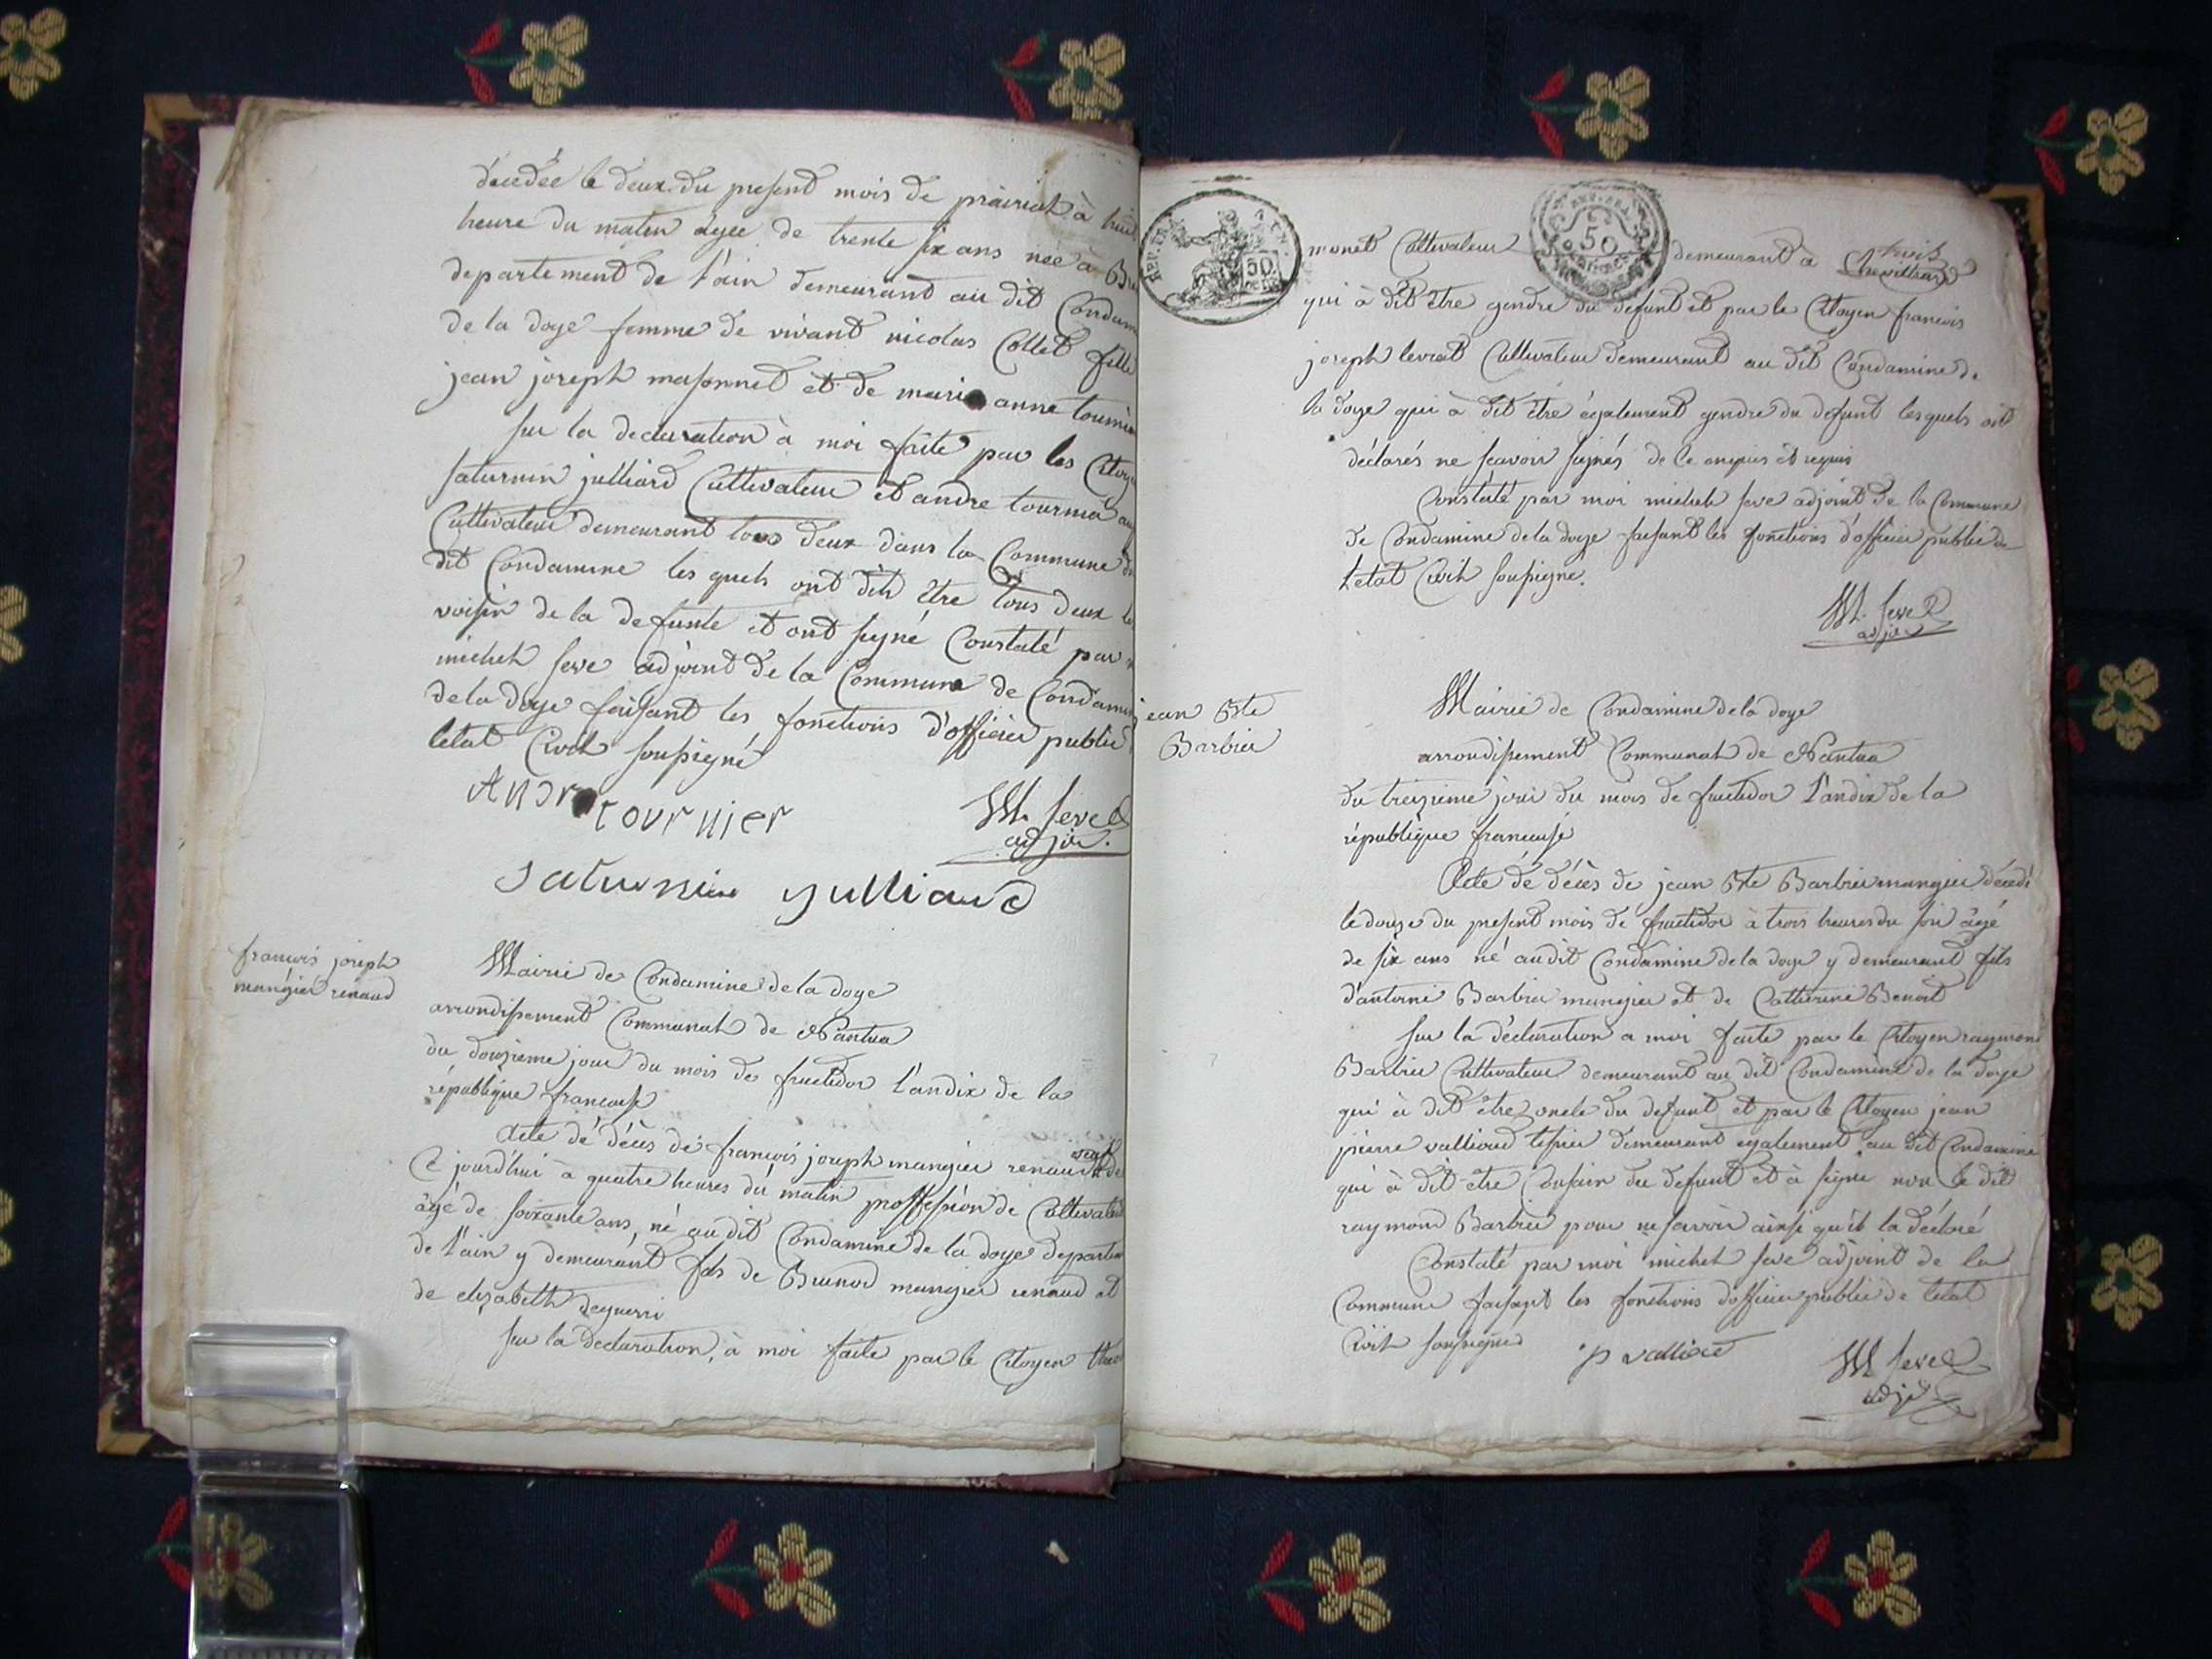 décedée le deux du present mois de prairial à huit
heure du matin agée de trente six ans née à
departement de l'ain demeurant au dit Condam
de la doye femme de vivant nicolas Collet fille
jean joseph massonnet et de marie anne tournie
sur la declaration à moi faite par les Citoye
saturnin julliard Cultivateur et andre tournié
Cultivateur demeurant tous deux dans la Commune du
dit Condamine les quels ont dit être tous deux
voisin de la defunte et ont signé Constaté par
michel seve adjoint de la Commune de Condami
de la doye faisant les fonctions d'officier public
letat Civil soussigné
Andre tournier
M. seve
adjoi.
saturnin julliard
francois joseph
mangier renaud
Mairie de Condamine de la doye
arrondissement Communal de Nantua
du douzieme jour du mois de fructidor l'an dix de la
république francaise
acte de décès de francois joseph mangier renaud
Ce jourd'hui à quatre heures du matin proffession de Cultivateur
âgé de soixante ans, né au dit Condamine de la doye departem
de l'ain y demeurant fils de Brunod mangier renaud et
de elizabeth
sur la declaration, à moi faite par le Citoyen
REP. FRA
50
50
monet Cultivateur demeurant à Chevillard
qui à dit être gendre du defunt et par le Citoyen francois
joseph levrat Cultivateur demeurant au dit Condamine de
la doye qui à dit être également gendre du defunt lesquels ont
déclarés ne scavoir signés de Ce enquis et requis
Constaté par moi michel seve adjoint de la Commune
de Condamine de la doye faisant les fonctions d'officier public de
letat Civil soussigne.
M. seve
adjoi
jean Bte
Barbier
Mairie de Condamine de la doye
arrondissement Communal de Nantua
du treizieme jour du mois de fructidor l'an dix de la
république francaise
Acte de décès de jean Bte Barbier mangier décedé
le douze du present mois de fructidor à trois heures du soir âgé
de six ans né au dit Condamine de la doye y demeurant fils
d'antoine Barbier mangier et de Catherine Benoit
sur la déclaration a moi faite par le Citoyen raymond
Barbier Cultivateur demeurant au dit Condamine de la doye
qui à dit être oncle du defunt et par le Citoyen jean
pierre vallioud tissier demeurant egalement au dit Condamine
qui à dit être Cousin du defunt et à signé non le dit
raymond Barbier pour ne scavoir ainsi qu'il la déclaré
Constaté par moi michel seve adjoint de la
Commune faisant les fonctions d'officier public de letat
Civil soussigné
M seve
adjoi